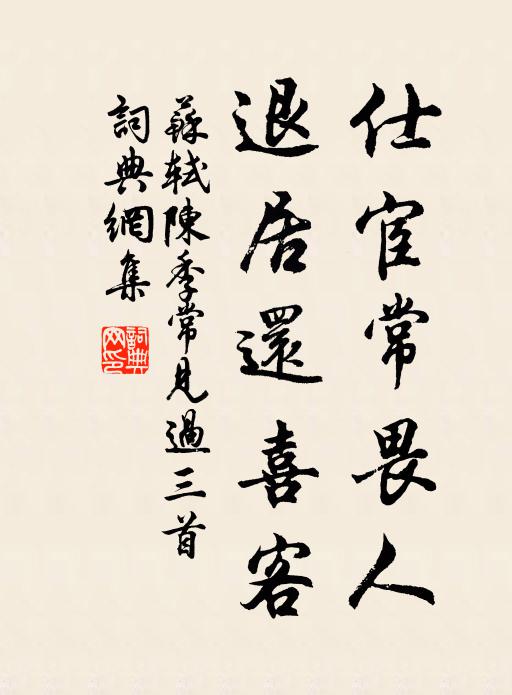 仕宦常畏人
退居還喜客
蘇軾陳季常見過三首
詞典網集
詞典網印